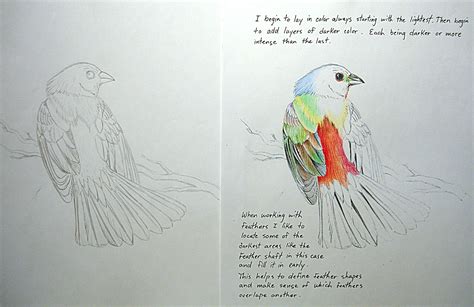 I begin to lay in color always starting with the lightest. Then begin
to add layers of darker color. Each being darker or more
intense than the last.
When working with
feathers I like to
locate some of the
darkest areas like the
feather shaft in this case
and fill it in early
This helps to define feather shapes
and make sense of which feathers
overlape another.